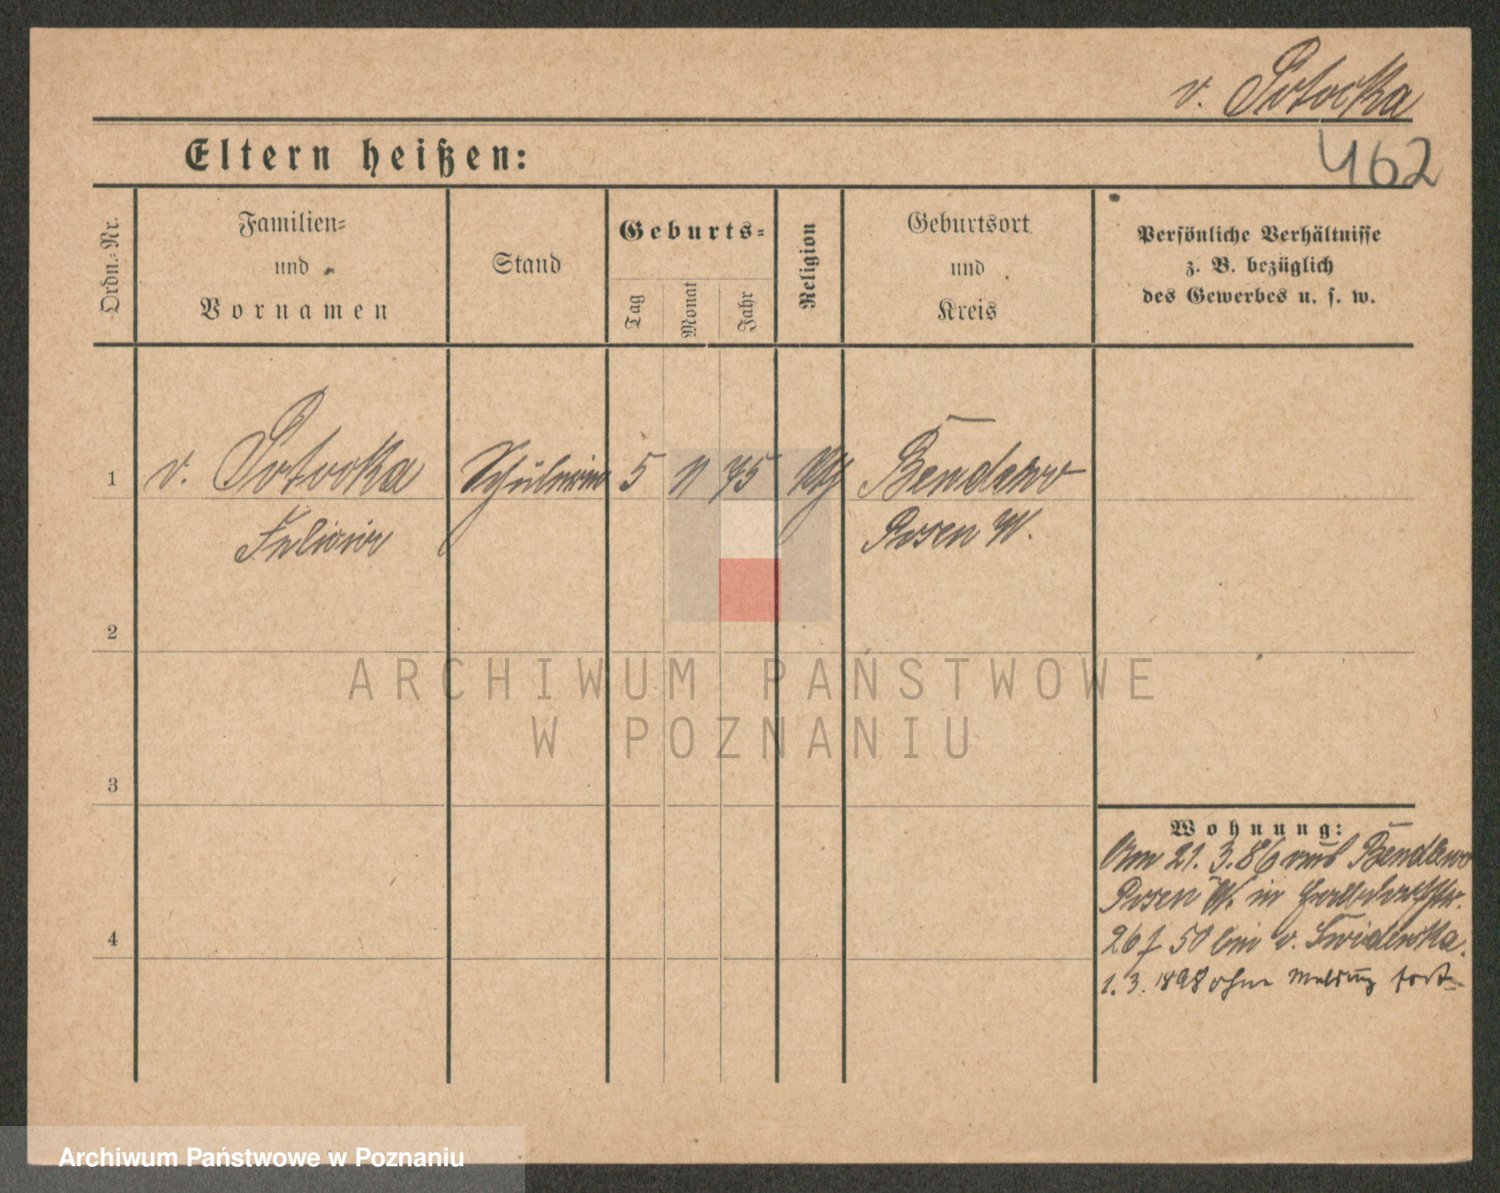 v. Potocka
462
Eltern heißen:
Ordn.-Nr.
Familien-
und
Vornamen
Stand
Geburts-
Tag
Monat
Jahr
Religion
Geburtsort
und
Kreis
Persönliche Verhältnisse
z. B. bezüglich
des Gewerbes u. s. w.
1 v. Potocka Schülerin 5 11 75 Kth Bendlewo
Posen W.
2
3
4
Wohnung:
Am 21.3.86 aus Bendlewo
Posen W. in
26 f 50 bei v.
1.3.1898 ohne Meldung fort
ARCHIWUM PAŃSTWOWE
W POZNANIU
Archiwum Państwowe w Poznaniu